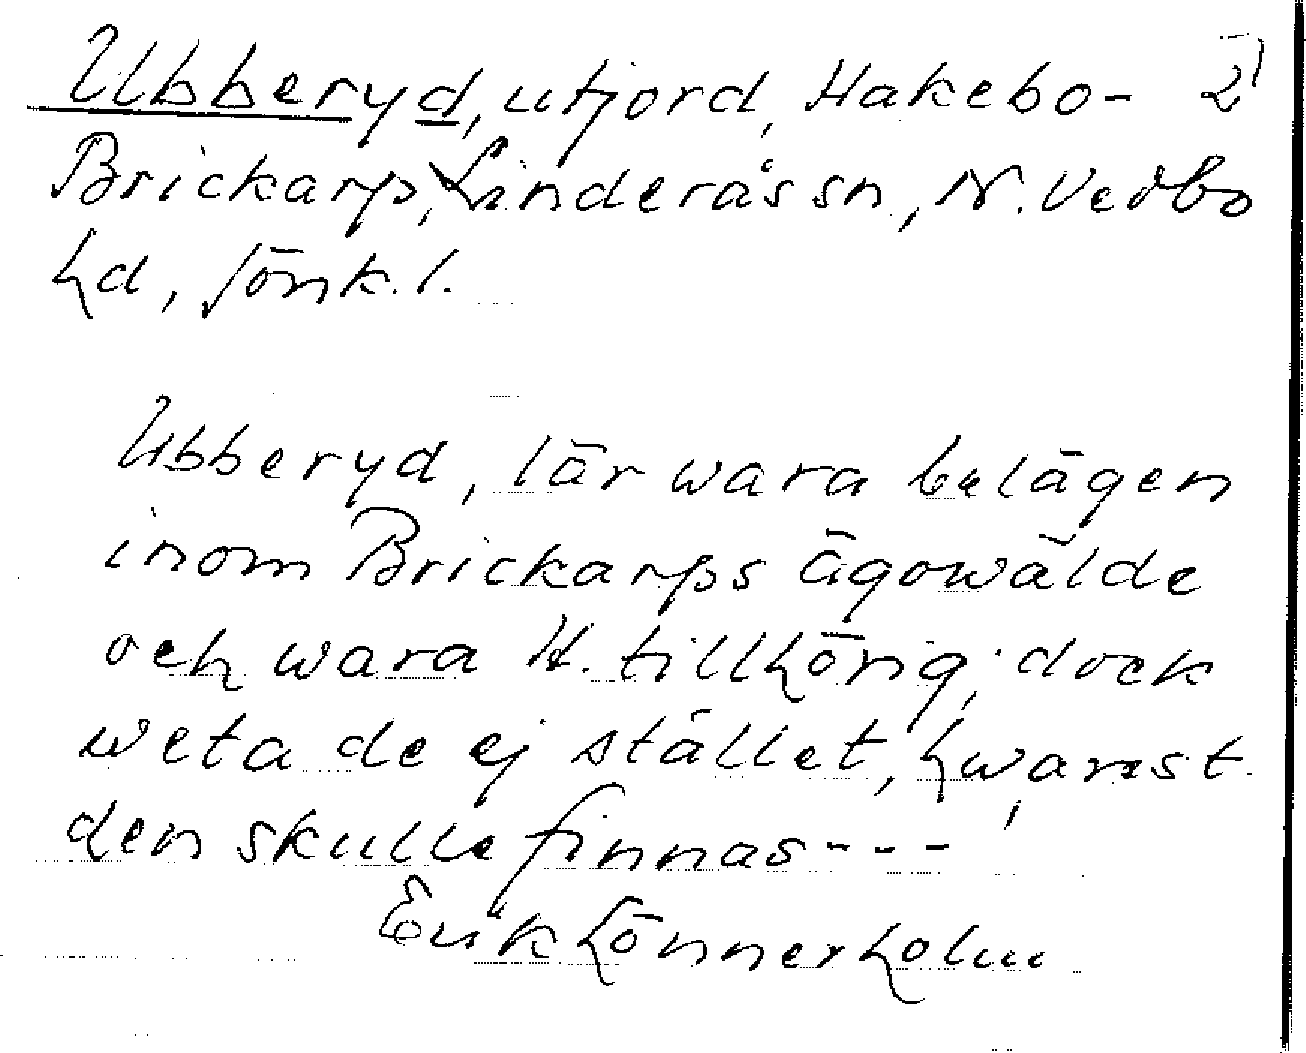 Ubberyd, utjord, Hakebo- 2)
Brickarp, Linderås sn, N. Vedbo
hd, Jönk. l.
Ubberyd, lär wara belägen
inom Brickarps ägowälde
och wara H. tillhörig; dock
weta de ej stället, hwarest
den skulle finnas---
Erik Lönnerholm